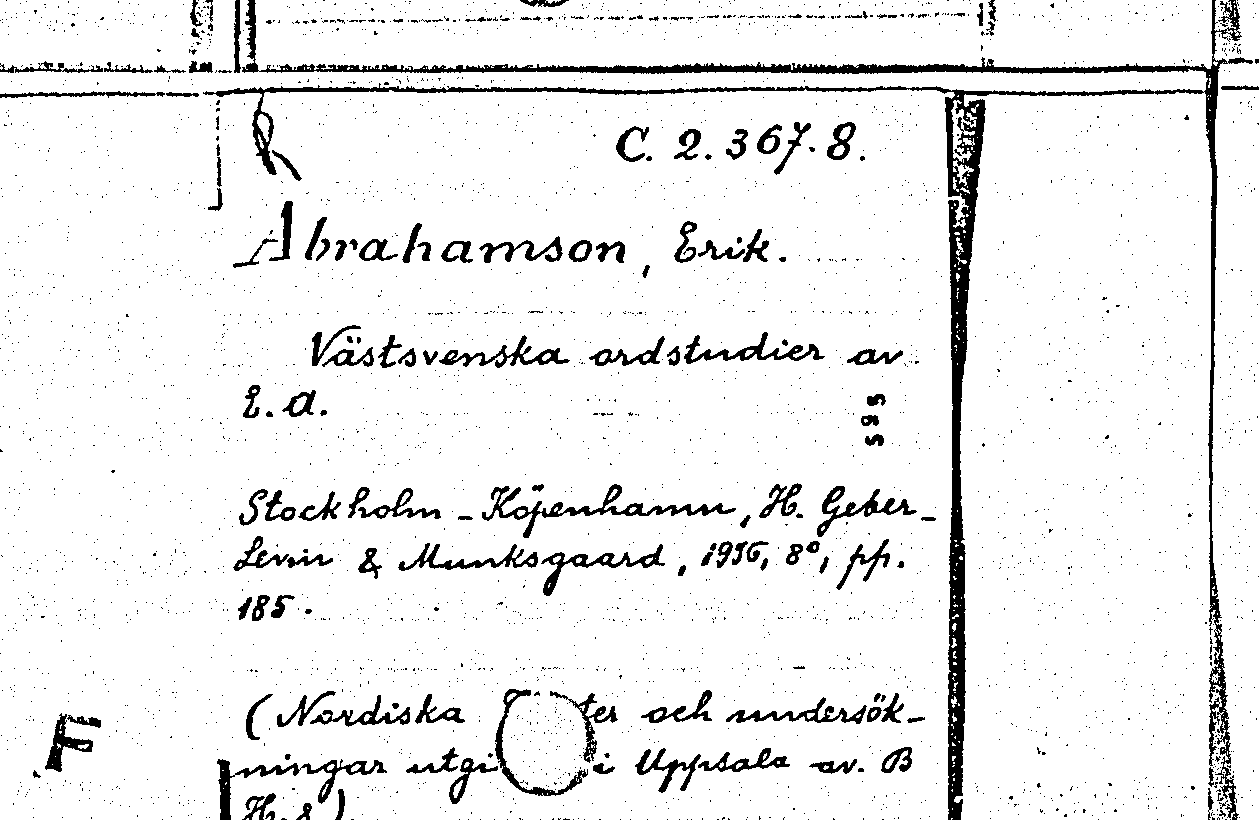 C. 2. 367. 8.
Abrahamson, Erik.
Västsvenska ordstudier av
E. A.
595
Stockholm - Köpenhamn, H. Geber -
Levin & Munksgaard, 1936, 8°, pp.
185.
(Nordiska ter och undersök-
ningar utgi i Uppsala av. B
H. 8)
F